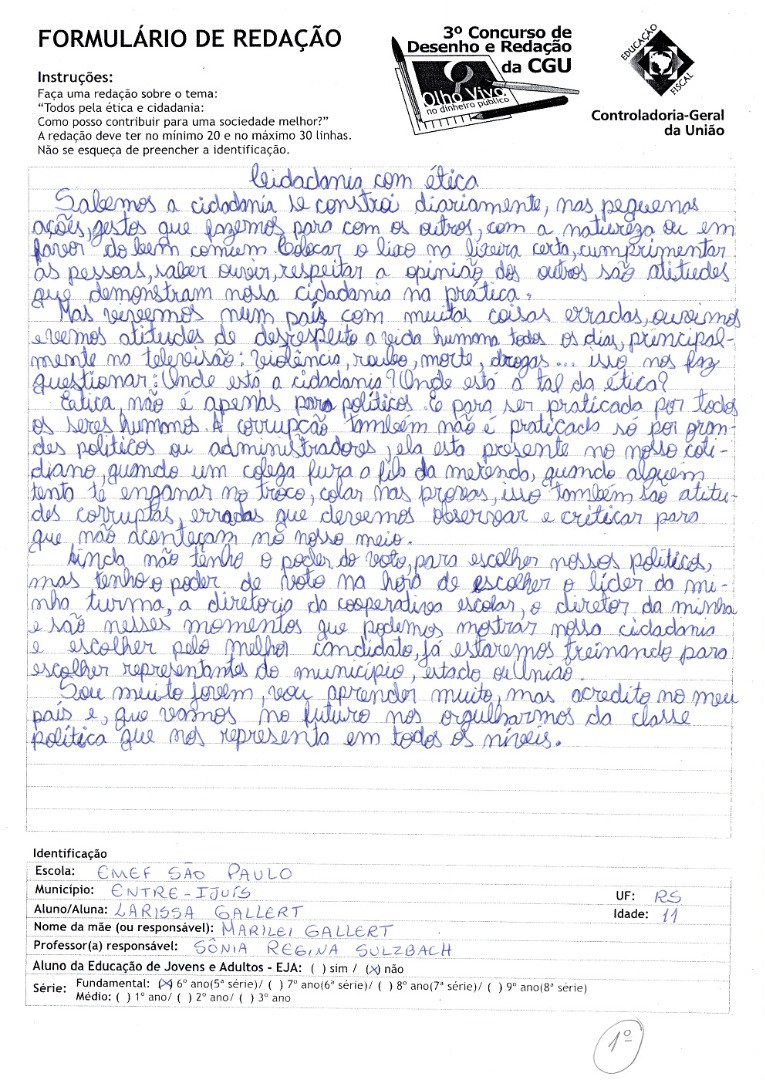 FORMULÁRIO DE REDAÇÃO
Instruções:
Faça uma redação sobre o tema:
“Todos pela ética e cidadania:
Como posso contribuir para uma sociedade melhor?”
A redação deve ter no mínimo 20 e no máximo 30 linhas.
Não se esqueça de preencher a identificação.
3º Concurso de
Desenho e Redação
da CGU
Olho Vivo
no dinheiro público
EDUCAÇÃO
FISCAL
Controladoria-Geral
da União
Cidadania com ética
Sabemos a cidadania se constroi diariamente, nas pequenas
ações, gestos que fazemos para com os outros, com a natureza ou em
favor do bem comum. Colocar o lixo na lixeira certa, cumprimentar
as pessoas, saber ouvir, respeitar a opinião dos outros são atitudes
que demonstram nossa cidadania na prática.
Mas vivemos num país com muitas coisas erradas, ouvimos
e vemos atitudes de desrespeito a vida humana todos os dias, principal-
mente na televisão: violência, roubo, morte, drogas... isso nos faz
questionar: Onde está a cidadania? Onde está a tal da ética?
Ética, não é apenas para políticos. É para ser praticada por todos
os seres humanos. A corrupção também não é praticada só por gran-
des políticos ou administradores, ela esta presente no nosso coti-
diano, quando um colega fura a fila da merenda, quando alguém
tenta te enganar no troco, colar nas provas, isso também são atitu-
des corruptas, erradas que devemos observar e criticar para
que não aconteçam no nosso meio.
Ainda não tenho o poder do voto, para escolher nossos políticos,
mas tenho o poder de voto na hora de escolher o líder da mi-
nha turma, a diretoria da cooperativa escolar, o diretor da minha
e são nesses momentos que podemos mostrar nossa cidadania
e escolher pelo melhor candidato, já estaremos treinando para
escolher representantes do município, estado ou União.
Sou muito jovem, vou aprender muito, mas acredito no meu
país e, que vamos no futuro nos orgulharmos da classe
política que nos representa em todos os níveis.
Identificação
Escola: EMEF SÃO PAULO
Município: ENTRE-IJUÍS UF: RS
Aluno/Aluna: LARISSA GALLERT Idade: 11
Nome da mãe (ou responsável): MARILEI GALLERT
Professor(a) responsável: SÔNIA REGINA SULZBACH
Aluno da Educação de Jovens e Adultos - EJA: ( ) sim / (x) não
Série: Fundamental: (x) 6º ano(5ª série)/ ( ) 7º ano(6ª série)/ ( ) 8º ano(7ª série)/ ( ) 9º ano(8ª série)
Médio: ( ) 1º ano/ ( ) 2º ano/ ( ) 3º ano
1º